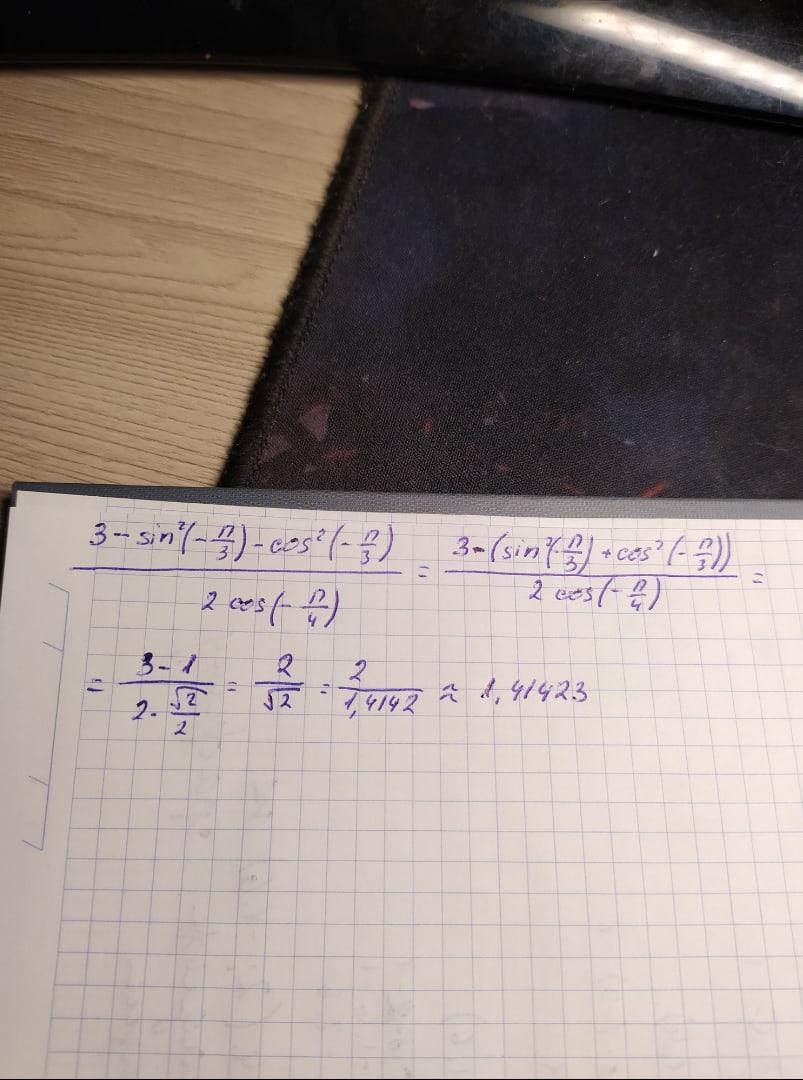 3 - sin²(-π/3) - cos²(-π/3) / 2 cos(-π/4) = 3 - (sin²(-π/3) + cos²(-π/3)) / 2 cos(-π/4) =
= 3 - 1 / 2 · √2/2 = 2/√2 = 2/1,4142 ≈ 1,41423